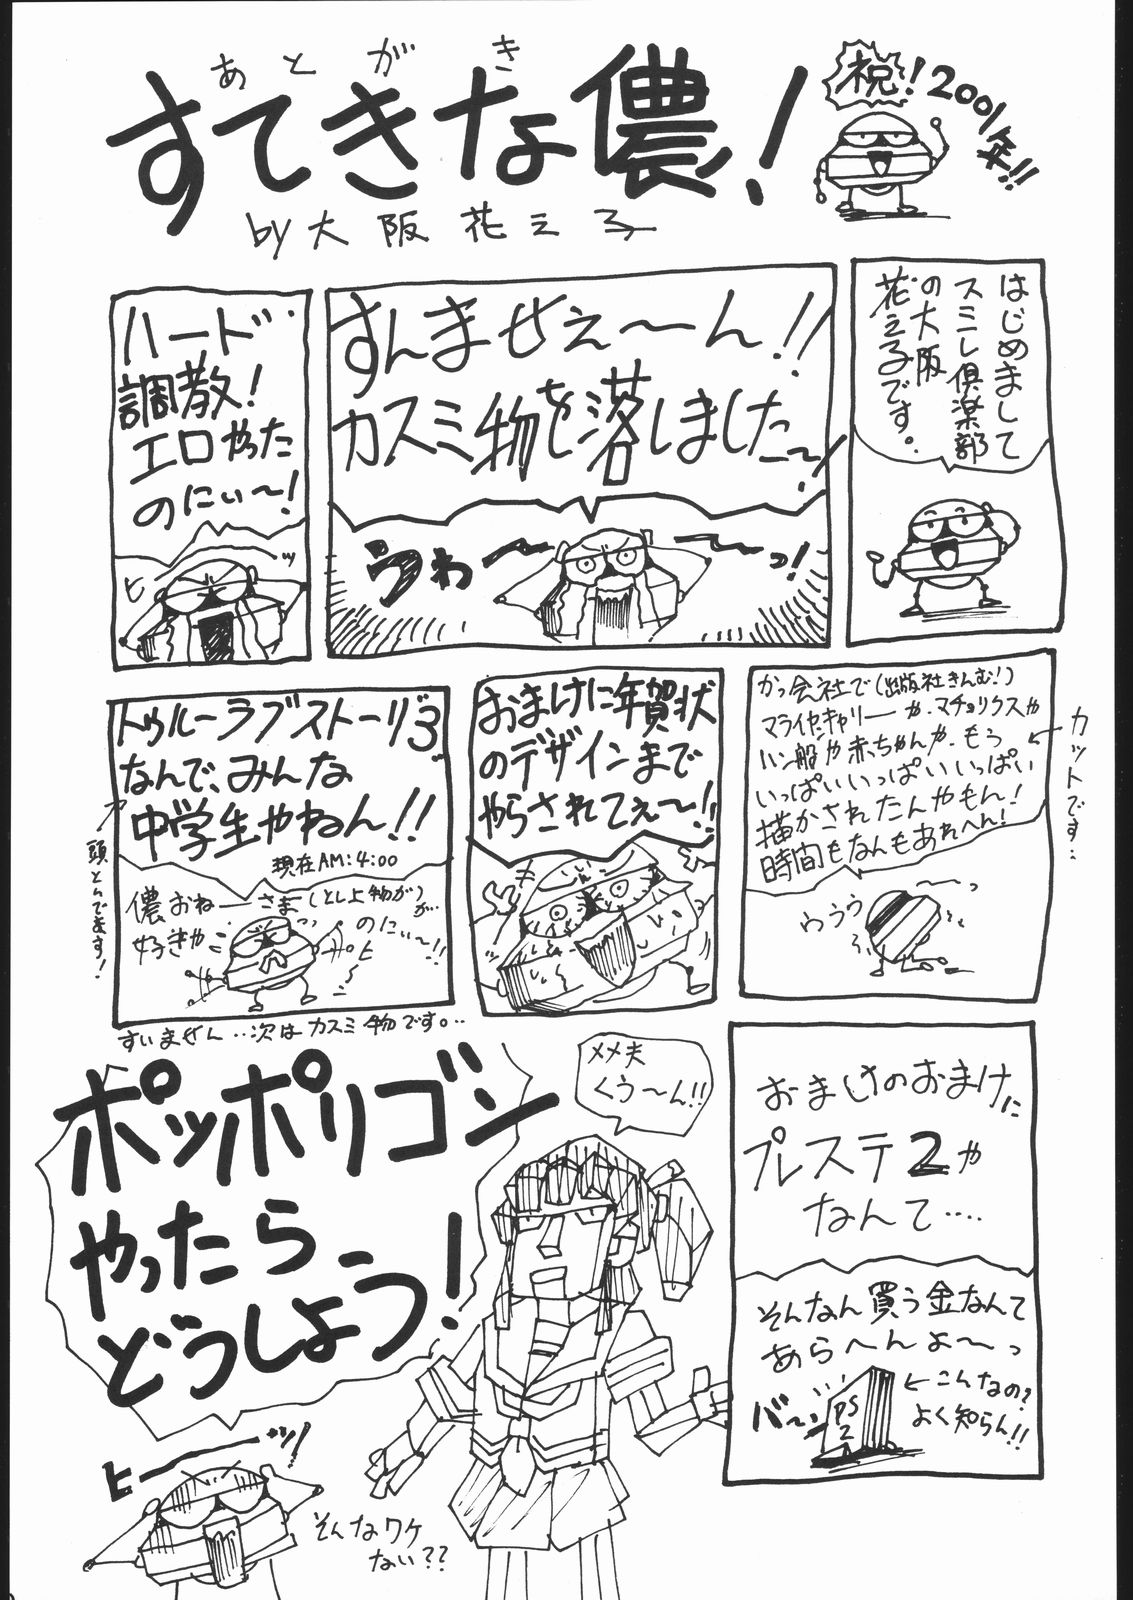 あとがき
すてきな儂!
by 大阪花之子
祝!2001年!!
はじめまして
スミレ倶楽部
の大阪
花之子です。
すんませぇ〜ん!!
カスミ物を落しました〜!
うわ〜〜っ!
ハード
調教!
エロやった
のにぃ〜!
ヒーッ
かつ会社で(出版社きんむ!)
マライヤキャリーや、マチョリクスや
ハン船や赤ちゃんや、もう
いっぱいいっぱいいっぱい
描かされたんやもん!
時間もなんもあれへん!
カットです…
ウゥゥ〜っ
おまけに年賀状
のデザインまで
やらされてぇ〜!!
トゥルーラブストーリー3
なんで、みんな
中学生やねん!!
現在AM:4:00
頭とんでます!
儂おねーさま(とし上物が)が…
好きやっのにぃ〜!!
すいません…次はカスミ物です…
おまけのおまけに
プレステ2や
なんて….
そんなん買う金なんて
あら〜んよ〜っ
バーン
PS2
←こんなの?
よく知らん!!
ポッポリゴン
やったら
どうしよう!
メメ夫
くぅ〜ん!!
ヒーーッ!
そんなワケ
ない??